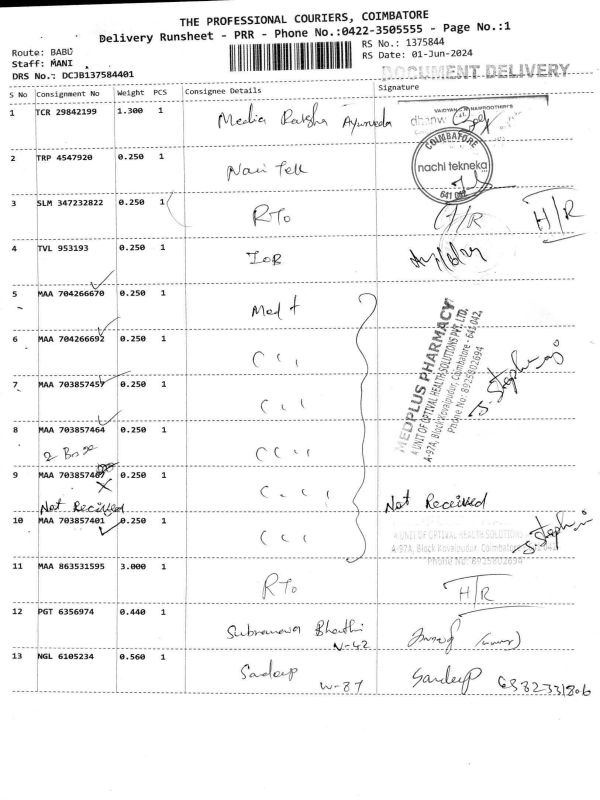 THE PROFESSIONAL COURIERS, COIMBATORE
Delivery Runsheet - PRR - Phone No.:0422-3505555 - Page No.:1
Route: BABU
Staff: MANI
DRS No.: DCJB137584401
RS No.: 1375844
RS Date: 01-Jun-2024
DOCUMENT DELIVERY
S No Consignment No Weight PCS Consignee Details Signature
1 TCR 29842199 1.300 1 Media Raksha Ayurveda
COIMBATORE
nachi tekneka
641 042
2 TRP 4547920 0.250 1 Navi Tek
3 SLM 347232822 0.250 1 RTO H/R
4 TVL 953193 0.250 1 IOB
5 MAA 704266670 0.250 1 Med +
6 MAA 704266692 0.250 1
MEDPLUS PHARMACY
A UNIT OF OPTIVAL HEALTH SOLUTIONS PVT. LTD.
A-97A, Block Kovaipudur, Coimbatore - 641 042,
Phone No: 8925802694
7 MAA 703857457 0.250 1
8 MAA 703857464 0.250 1
2 Box
9 MAA 703857407 0.250 1
Not Received Not Received
10 MAA 703857401 0.250 1
A UNIT OF OPTIVAL HEALTH SOLUTIONS
A-97A, Block Kovaipudur, Coimbatore 642 042
Phone No: 8925802694
11 MAA 863531595 3.000 1 RTO H/R
12 PGT 6356974 0.440 1
N-42
13 NGL 6105234 0.560 1 Sadeep Sardeep
W-87